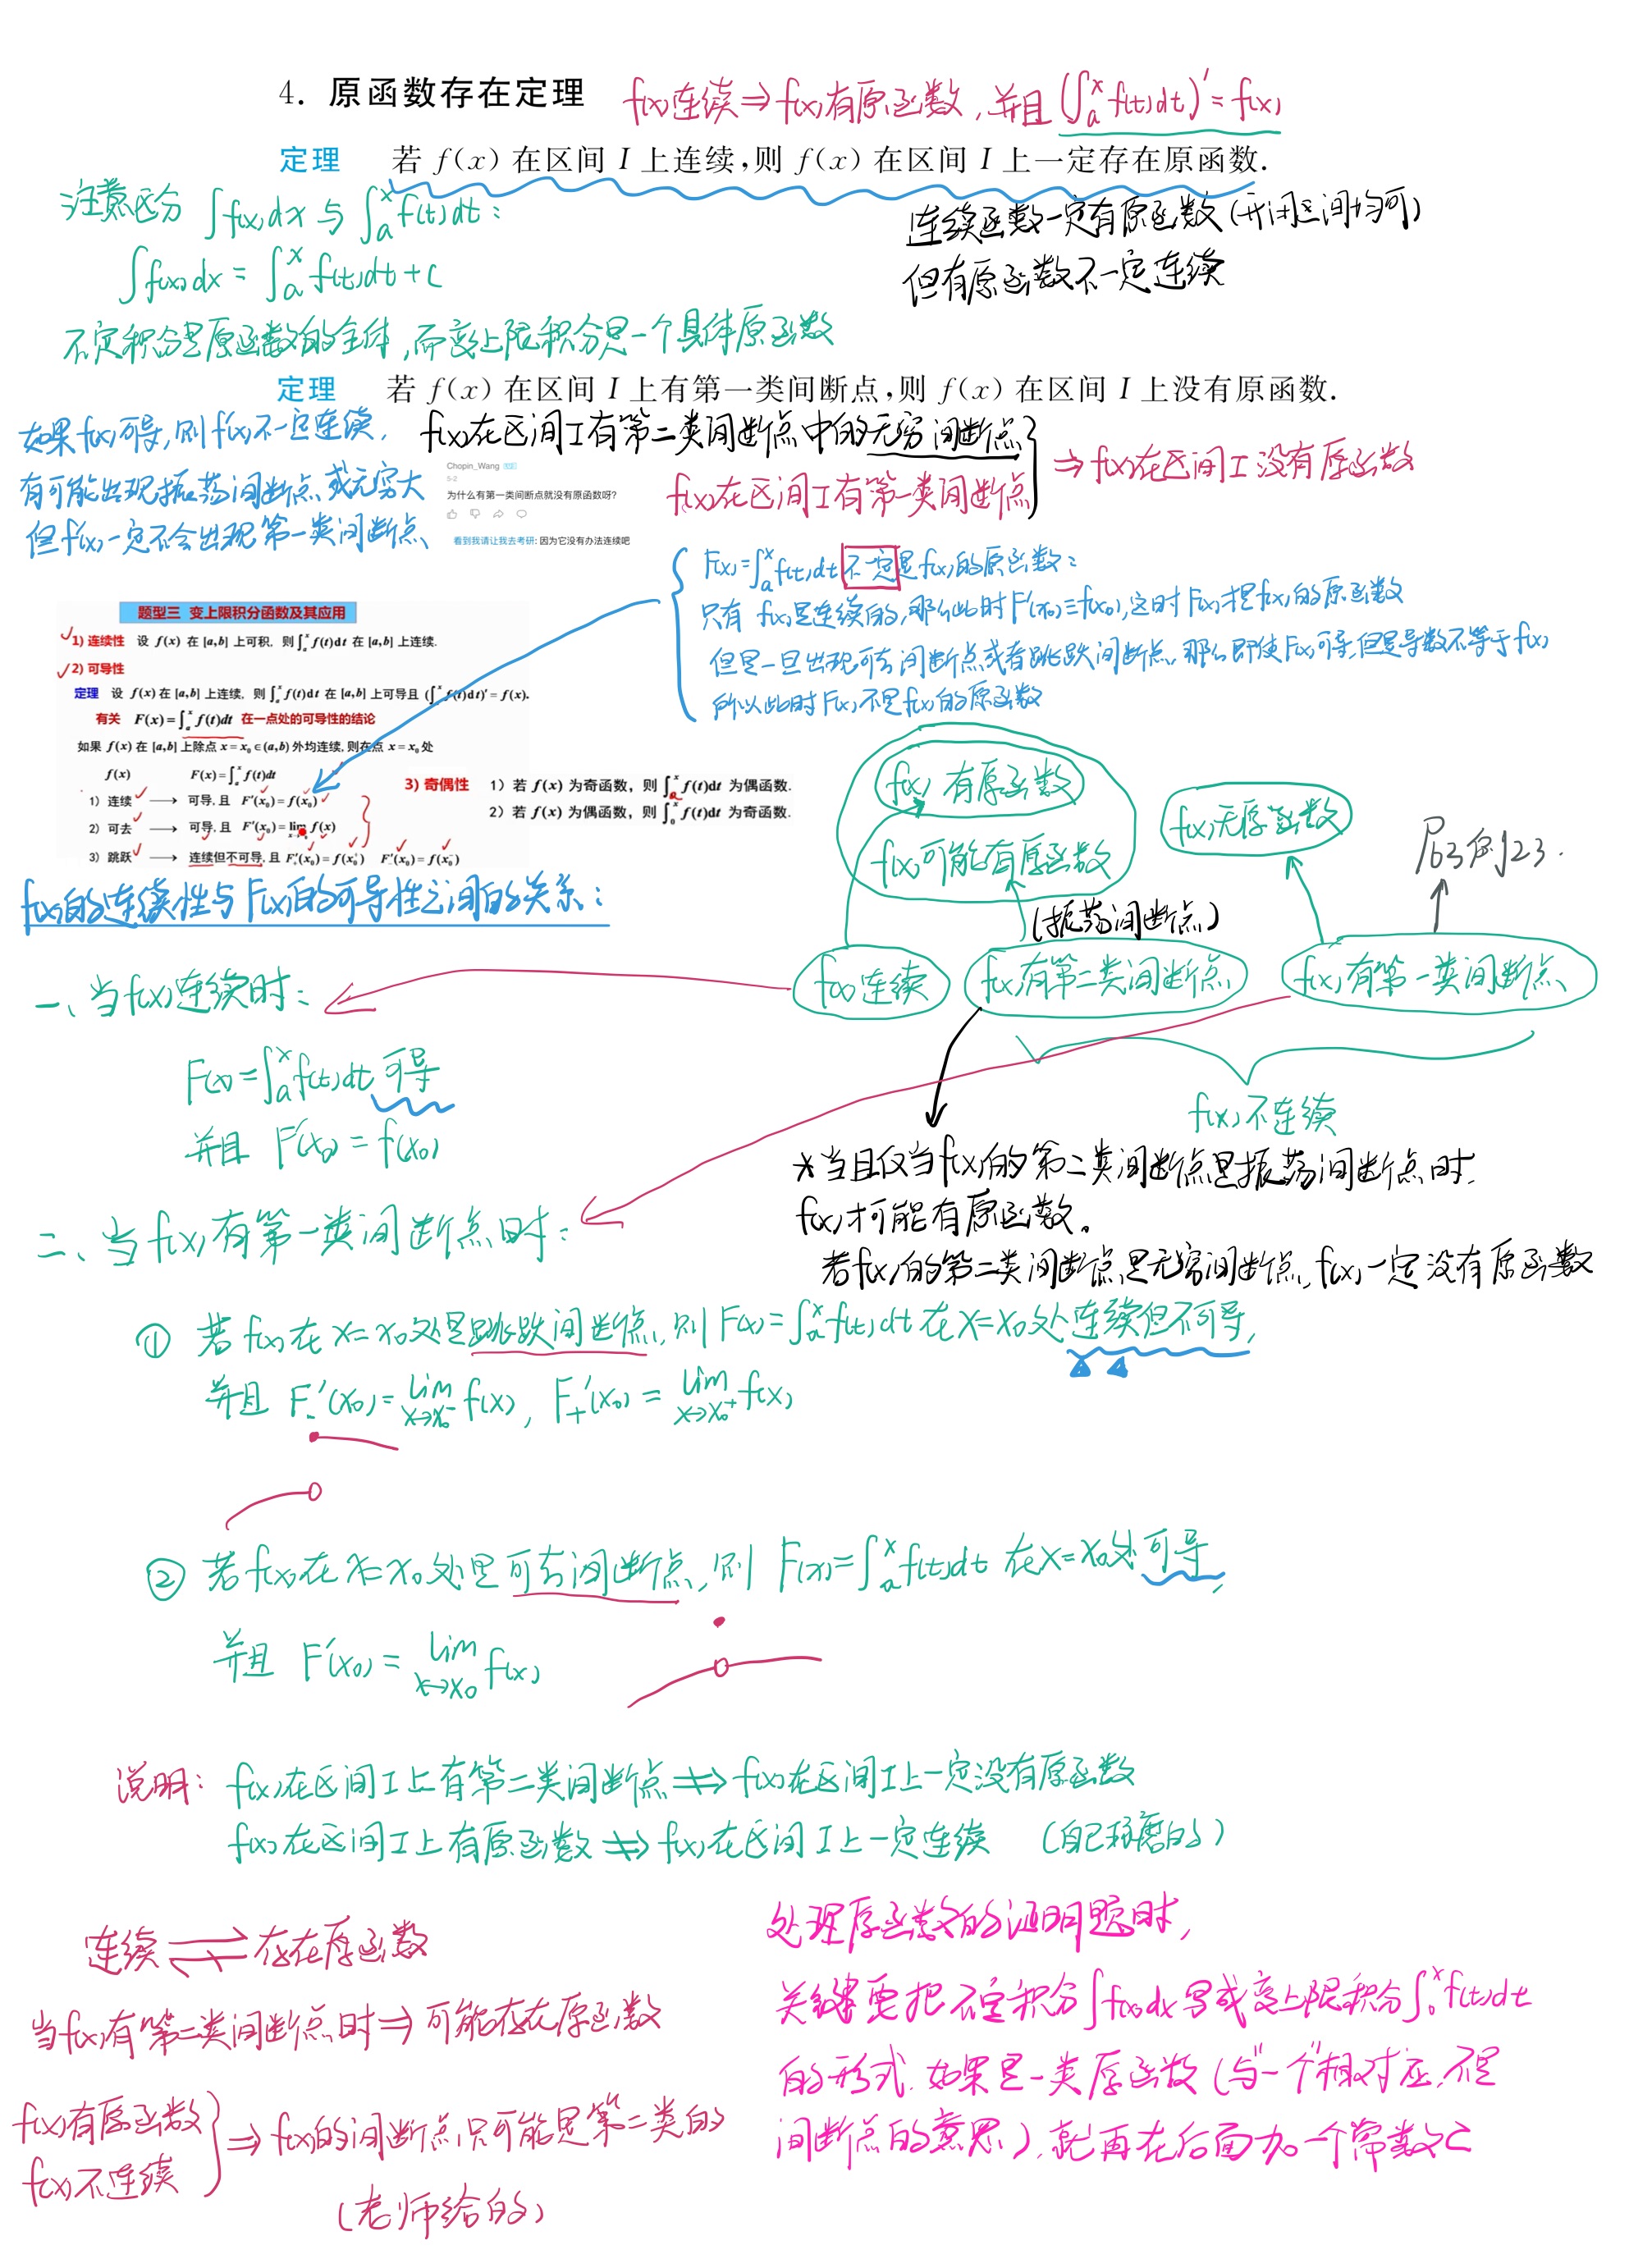 4. 原函数存在定理 f(x)连续⇒f(x)有原函数,并且(∫ₐˣf(t)dt)′=f(x)
定理 若 f(x) 在区间 I 上连续,则 f(x) 在区间 I 上一定存在原函数.
注意区分 ∫f(x)dx 与 ∫ₐˣf(t)dt:
∫f(x)dx = ∫ₐˣf(t)dt+C
不定积分是原函数的全体,而变上限积分是一个具体原函数
连续函数一定有原函数(开闭区间均可)
但有原函数不一定连续
定理 若 f(x) 在区间 I 上有第一类间断点,则 f(x) 在区间 I 上没有原函数.
如果f(x)可导,则f′(x)不一定连续,
有可能出现振荡间断点或无穷大
但f′(x)一定不会出现第一类间断点
f(x)在区间I有第二类间断点中的无穷间断点
f(x)在区间I有第一类间断点
⇒f(x)在区间I没有原函数
Chopin_Wang
5-2
为什么有第一类间断点就没有原函数呀?
看到我请让我去考研: 因为它没有办法连续吧
F(x)=∫ₐˣf(t)dt不一定是f(x)的原函数:
只有f(x)是连续的,那么此时F′(x₀)≡f(x₀),这时F(x)才是f(x)的原函数
但是一旦出现可去间断点或者跳跃间断点,那么即使F(x)可导,但是导数不等于f(x)
所以此时F(x)不是f(x)的原函数
题型三 变上限积分函数及其应用
1) 连续性 设 f(x) 在 [a,b] 上可积, 则 ∫ₐˣ f(t)dt 在 [a,b] 上连续.
2) 可导性
定理 设 f(x) 在 [a,b] 上连续, 则 ∫ₐˣ f(t)dt 在 [a,b] 上可导且 (∫ₐˣ f(t)dt)′ = f(x).
有关 F(x)=∫ₐˣ f(t)dt 在一点处的可导性的结论
如果 f(x) 在 [a,b] 上除点 x = x₀ ∈(a,b) 外均连续, 则在点 x = x₀ 处
f(x) F(x)=∫ₐˣ f(t)dt
1) 连续 → 可导, 且 F′(x₀)= f(x₀)
2) 可去 → 可导, 且 F′(x₀)= lim f(x)
3) 跳跃 → 连续但不可导, 且 F₋′(x₀)= f(x₀⁻) F₊′(x₀)= f(x₀⁺)
3) 奇偶性 1) 若 f(x) 为奇函数, 则 ∫ₐˣ f(t)dt 为偶函数.
2) 若 f(x) 为偶函数, 则 ∫₀ˣ f(t)dt 为奇函数.
f(x)有原函数
f(x)可能有原函数
f(x)无原函数
P63例23.
(振荡间断点)
f(x)连续
f(x)有第二类间断点
f(x)有第一类间断点
f(x)不连续
f(x)的连续性与F(x)的可导性之间的关系:
一、当f(x)连续时:
F(x)=∫ₐˣf(t)dt可导
并且 F′(x₀)=f(x₀)
*当且仅当f(x)的第二类间断点是振荡间断点时,
f(x)才可能有原函数。
若f(x)的第二类间断点是无穷间断点,f(x)一定没有原函数
二、当f(x)有第一类间断点时:
① 若f(x)在x=x₀处是跳跃间断点,则F(x)=∫ₐˣf(t)dt在x=x₀处连续但不可导,
并且 F₋′(x₀)=lim x→x₀⁻ f(x), F₊′(x₀)=lim x→x₀⁺ f(x)
② 若f(x)在x=x₀处是可去间断点,则 F(x)=∫ₐˣf(t)dt 在x=x₀处可导,
并且 F′(x₀)=lim x→x₀ f(x)
说明: f(x)在区间I上有第二类间断点⇏f(x)在区间I上一定没有原函数
f(x)在区间I上有原函数⇏f(x)在区间I上一定连续 (自己琢磨的)
连续⇌存在原函数
当f(x)有第二类间断点时⇒可能存在原函数
f(x)有原函数
f(x)不连续
⇒f(x)的间断点只可能是第二类的
(老师给的)
处理原函数的证明题时,
关键要把不定积分∫f(x)dx写成变上限积分∫₀ˣf(t)dt
的形式.如果是一类原函数(与"一个"相对应,不是
间断点的意思),就再在后面加一个常数C